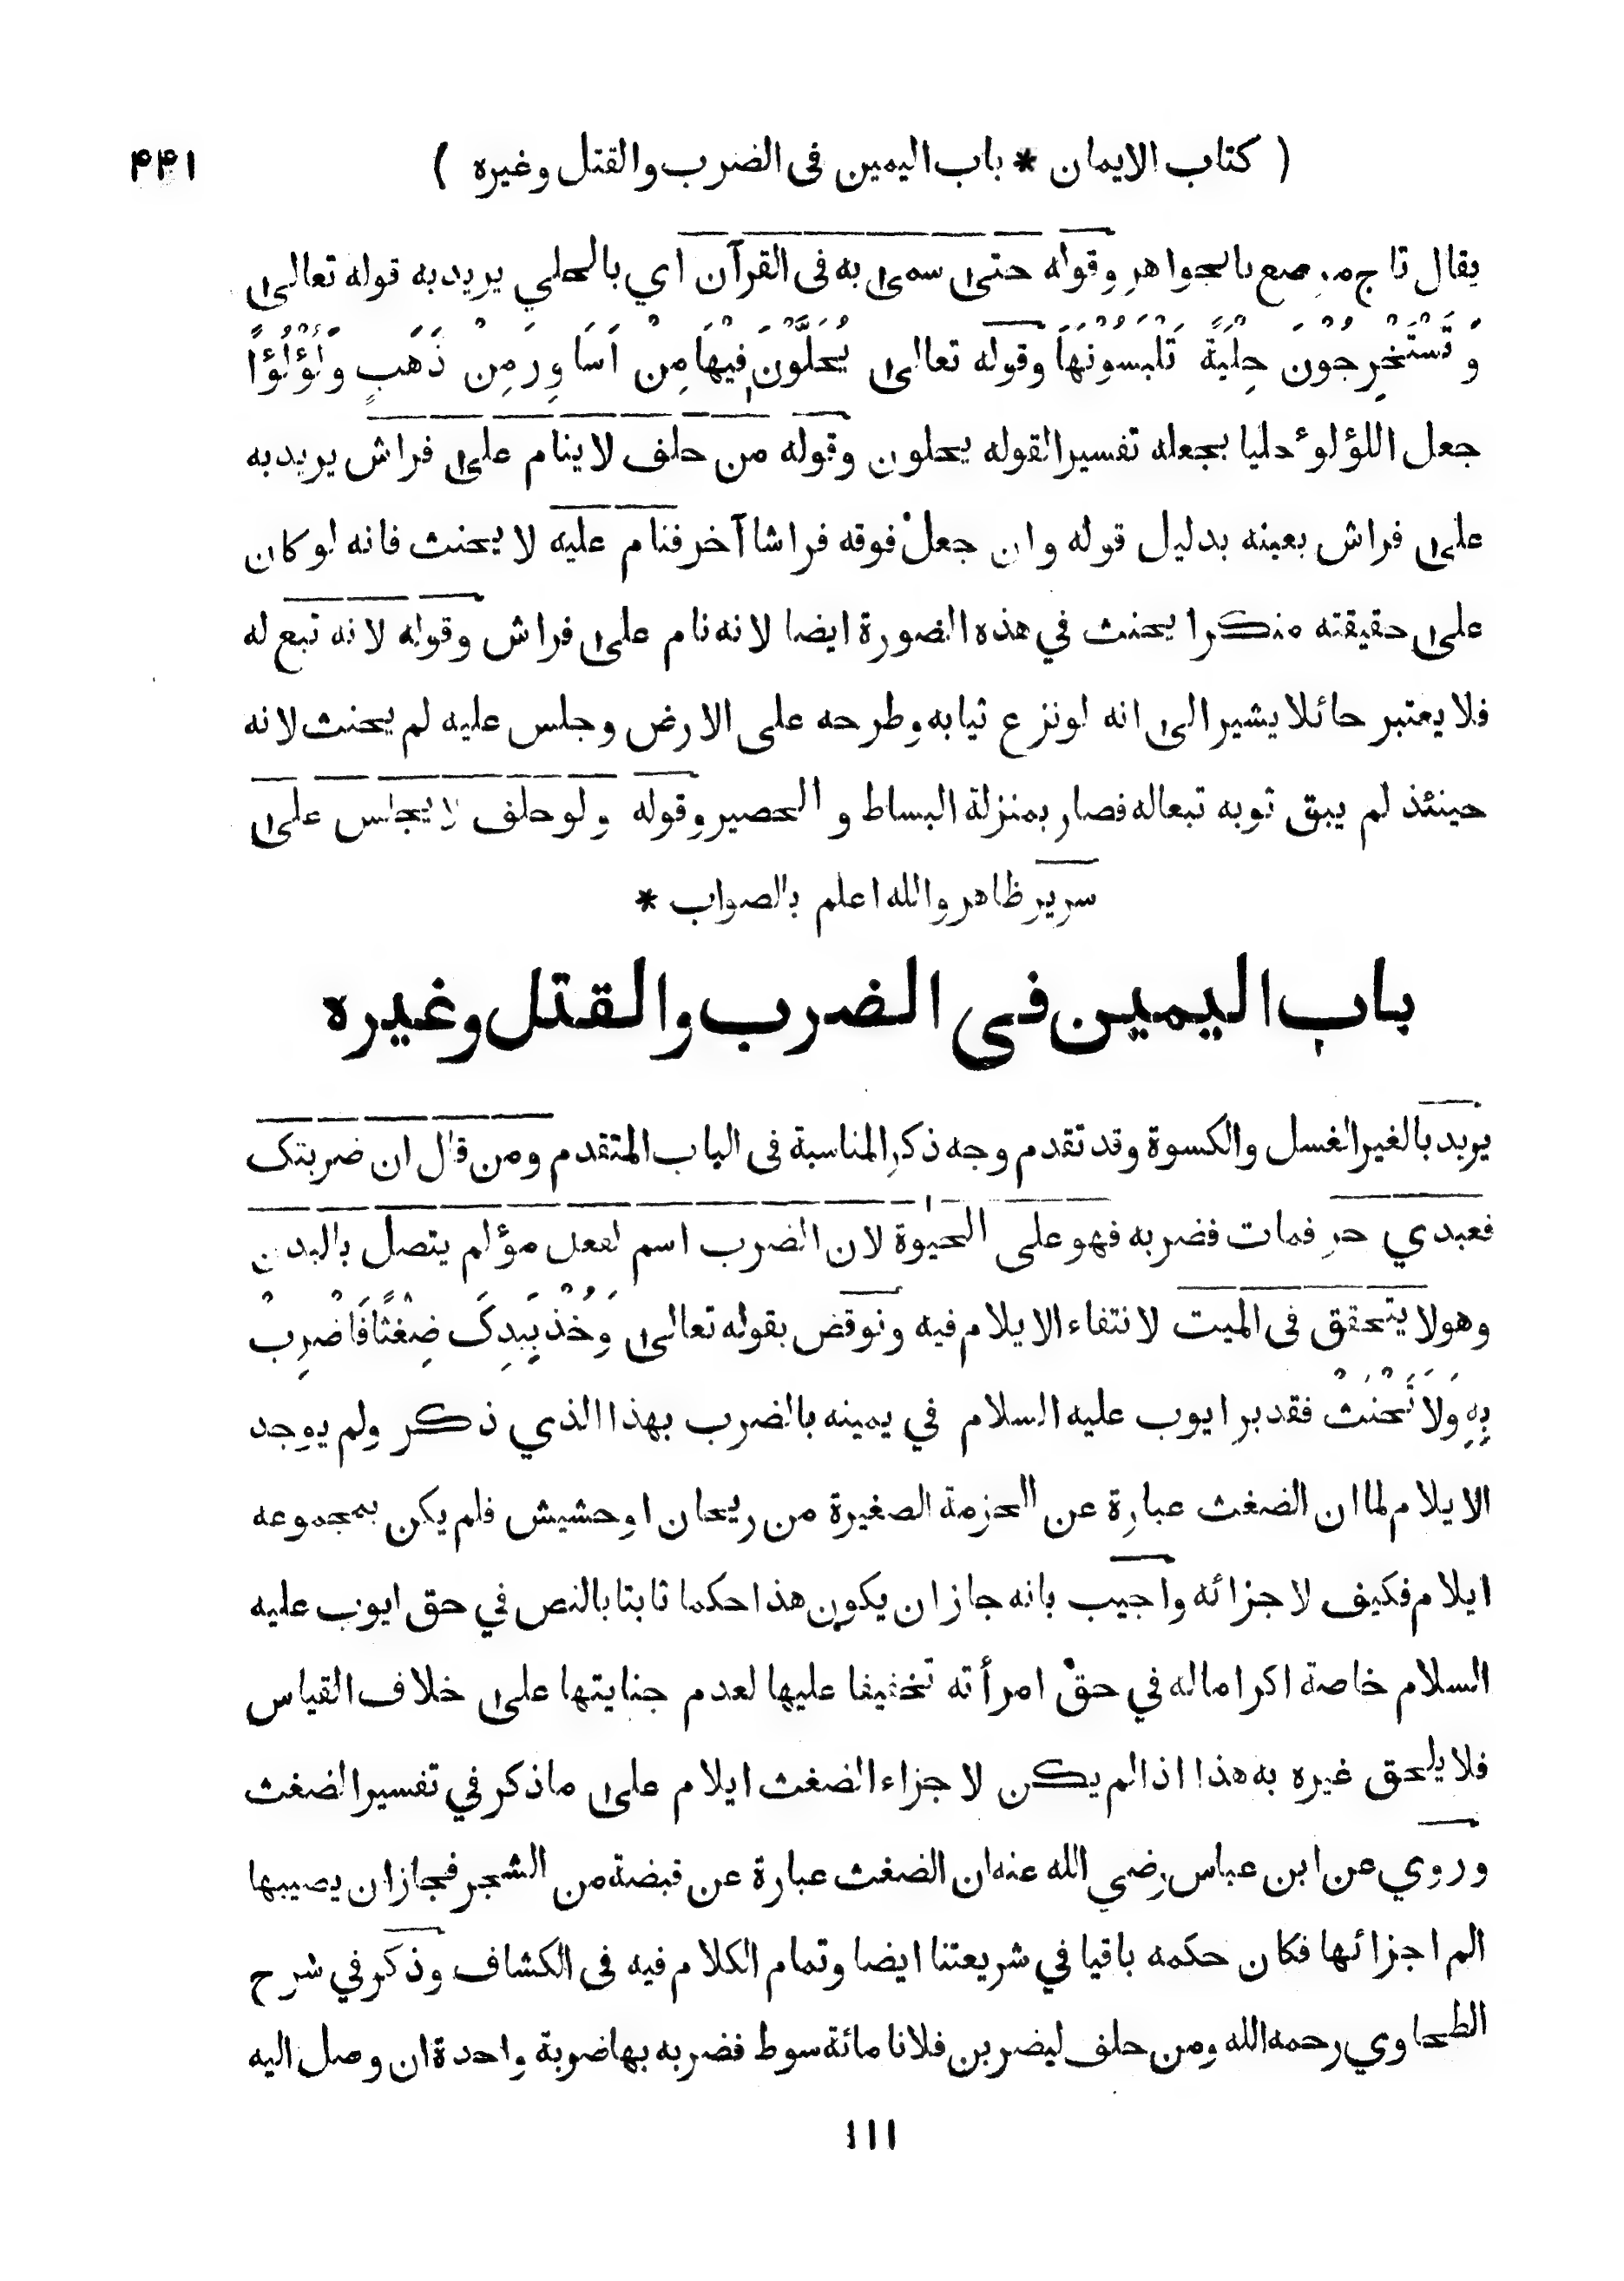 ( كتاب الايمان * باب اليمين فى الضرب والقتل وغيره ) ۴۴۱
يقال تاج مرصع بالجواهر وقوله حتى سمى به فى القرآن اي بالحلي يريد به قوله تعالى
وَتَسْتَخْرِجُونَ حِلْيَةً تَلْبَسُونَهَا وقوله تعالى يُحَلَّوْنَ فِيْهَا مِنْ اَسَاوِرَ مِنْ ذَهَبٍ وَلُؤْلُؤًا
جعل اللؤلوء حليا بجعله تفسيرا لقوله يحلون وقوله من حلف لا ينام على فراش يريد به
على فراش بعينه بدليل قوله وان جعل فوقه فراشا آخر فنام عليه لا يحنث فانه لو كان
على حقيقته منكرا يحنث في هذه الصورة ايضا لانه نام على فراش وقوله لانه تبع له
فلا يعتبر حائلا يشير الى انه لو نزع ثيابه وطرحه على الارض وجلس عليه لم يحنث لانه
حينئذ لم يبق ثوبه تبعا له فصار بمنزلة البساط والحصير وقوله ولو حلف لا يجلس على
سرير ظاهر والله اعلم بالصواب *
باب اليمين فى الضرب والقتل وغيره
يريد بالغير الغسل والكسوة وقد تقدم وجه ذكر المناسبة فى الباب المتقدم ومن قال ان ضربتك
فعبدي حر فمات فضربه فهو على الحيوة لان الضرب اسم لفعل مؤلم يتصل بالبدن
وهو لا يتحقق فى الميت لانتفاء الايلام فيه ونوقض بقوله تعالى وَخُذْ بِيَدِكَ ضِغْثًا فَاضْرِبْ
بِهِ وَلَا تَحْنَثْ فقد بر ايوب عليه السلام في يمينه بالضرب بهذا الذي ذكر ولم يوجد
الايلام لما ان الضغث عبارة عن الحزمة الصغيرة من ريحان او حشيش فلم يكن بمجموعه
ايلام فكيف لاجزائه واجيب بانه جاز ان يكون هذا حكما ثابتا بالنص في حق ايوب عليه
السلام خاصة اكراما له في حق امرأته تخفيفا عليها لعدم جنايتها على خلاف القياس
فلا يلحق غيره به هذا اذا لم يكن لاجزاء الضغث ايلام على ما ذكر في تفسير الضغث
وروي عن ابن عباس رضي الله عنه ان الضغث عبارة عن قبضة من الشجر فجاز ان يصيبها
الم اجزائها فكان حكمه باقيا في شريعتنا ايضا وتمام الكلام فيه فى الكشاف وذكر في شرح
الطحاوي رحمه الله ومن حلف ليضربن فلانا مائة سوط فضربه بها ضربة واحدة ان وصل اليه
ااا